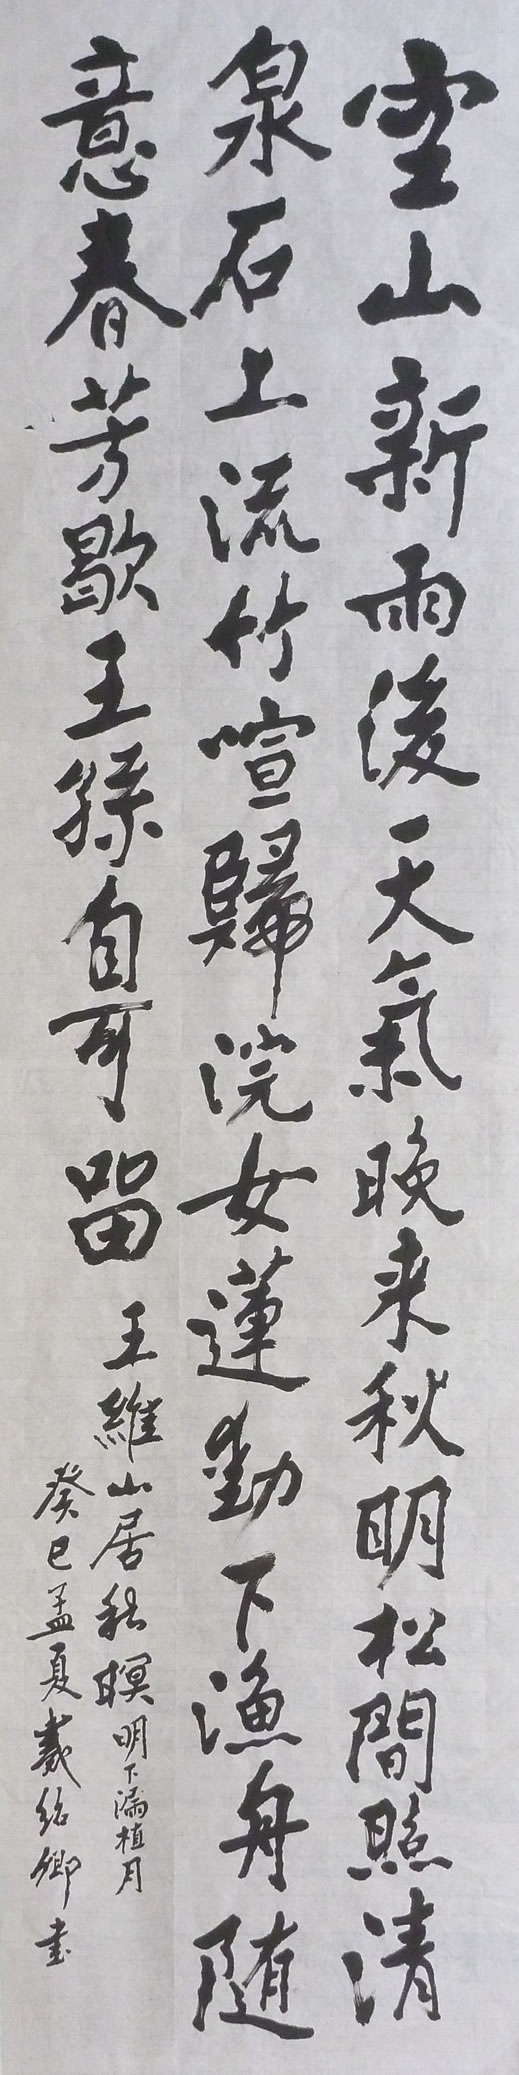 空山新雨後天氣晚来秋明松間照清
泉石上流竹喧歸浣女蓮動下漁舟随
意春芳歇王孫自可留
王維山居秋暝明下漏植月
癸巳孟夏戴紹卿書